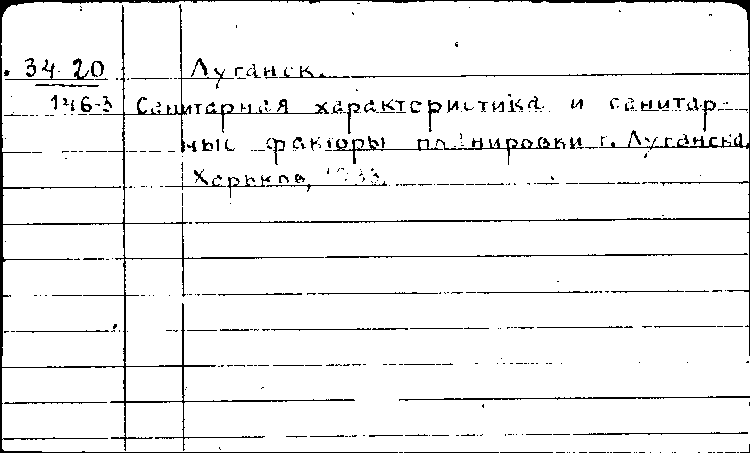 34.20 Луганск.
146-3 Санитарная характеристика и санитар-
ные факторы планировки г. Луганска.
Харьков, 1933.